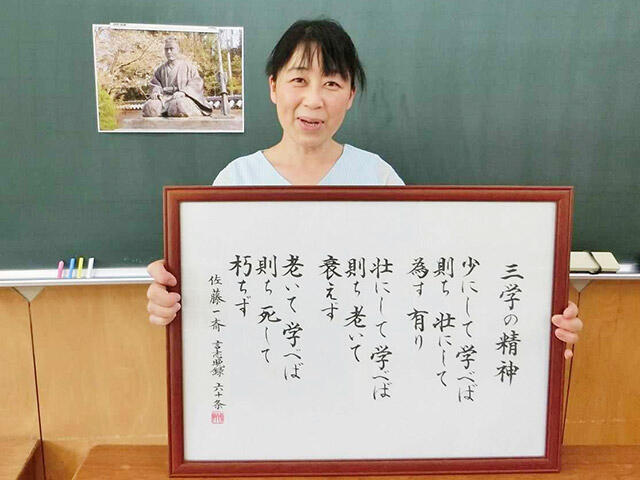 三学の精神
少にして学べば
則ち壮にして
為す有り
壮にして学べば
則ち老いて
衰えず
老いて学べば
則ち死して
朽ちず
佐藤一斎 言志晩録 六十条